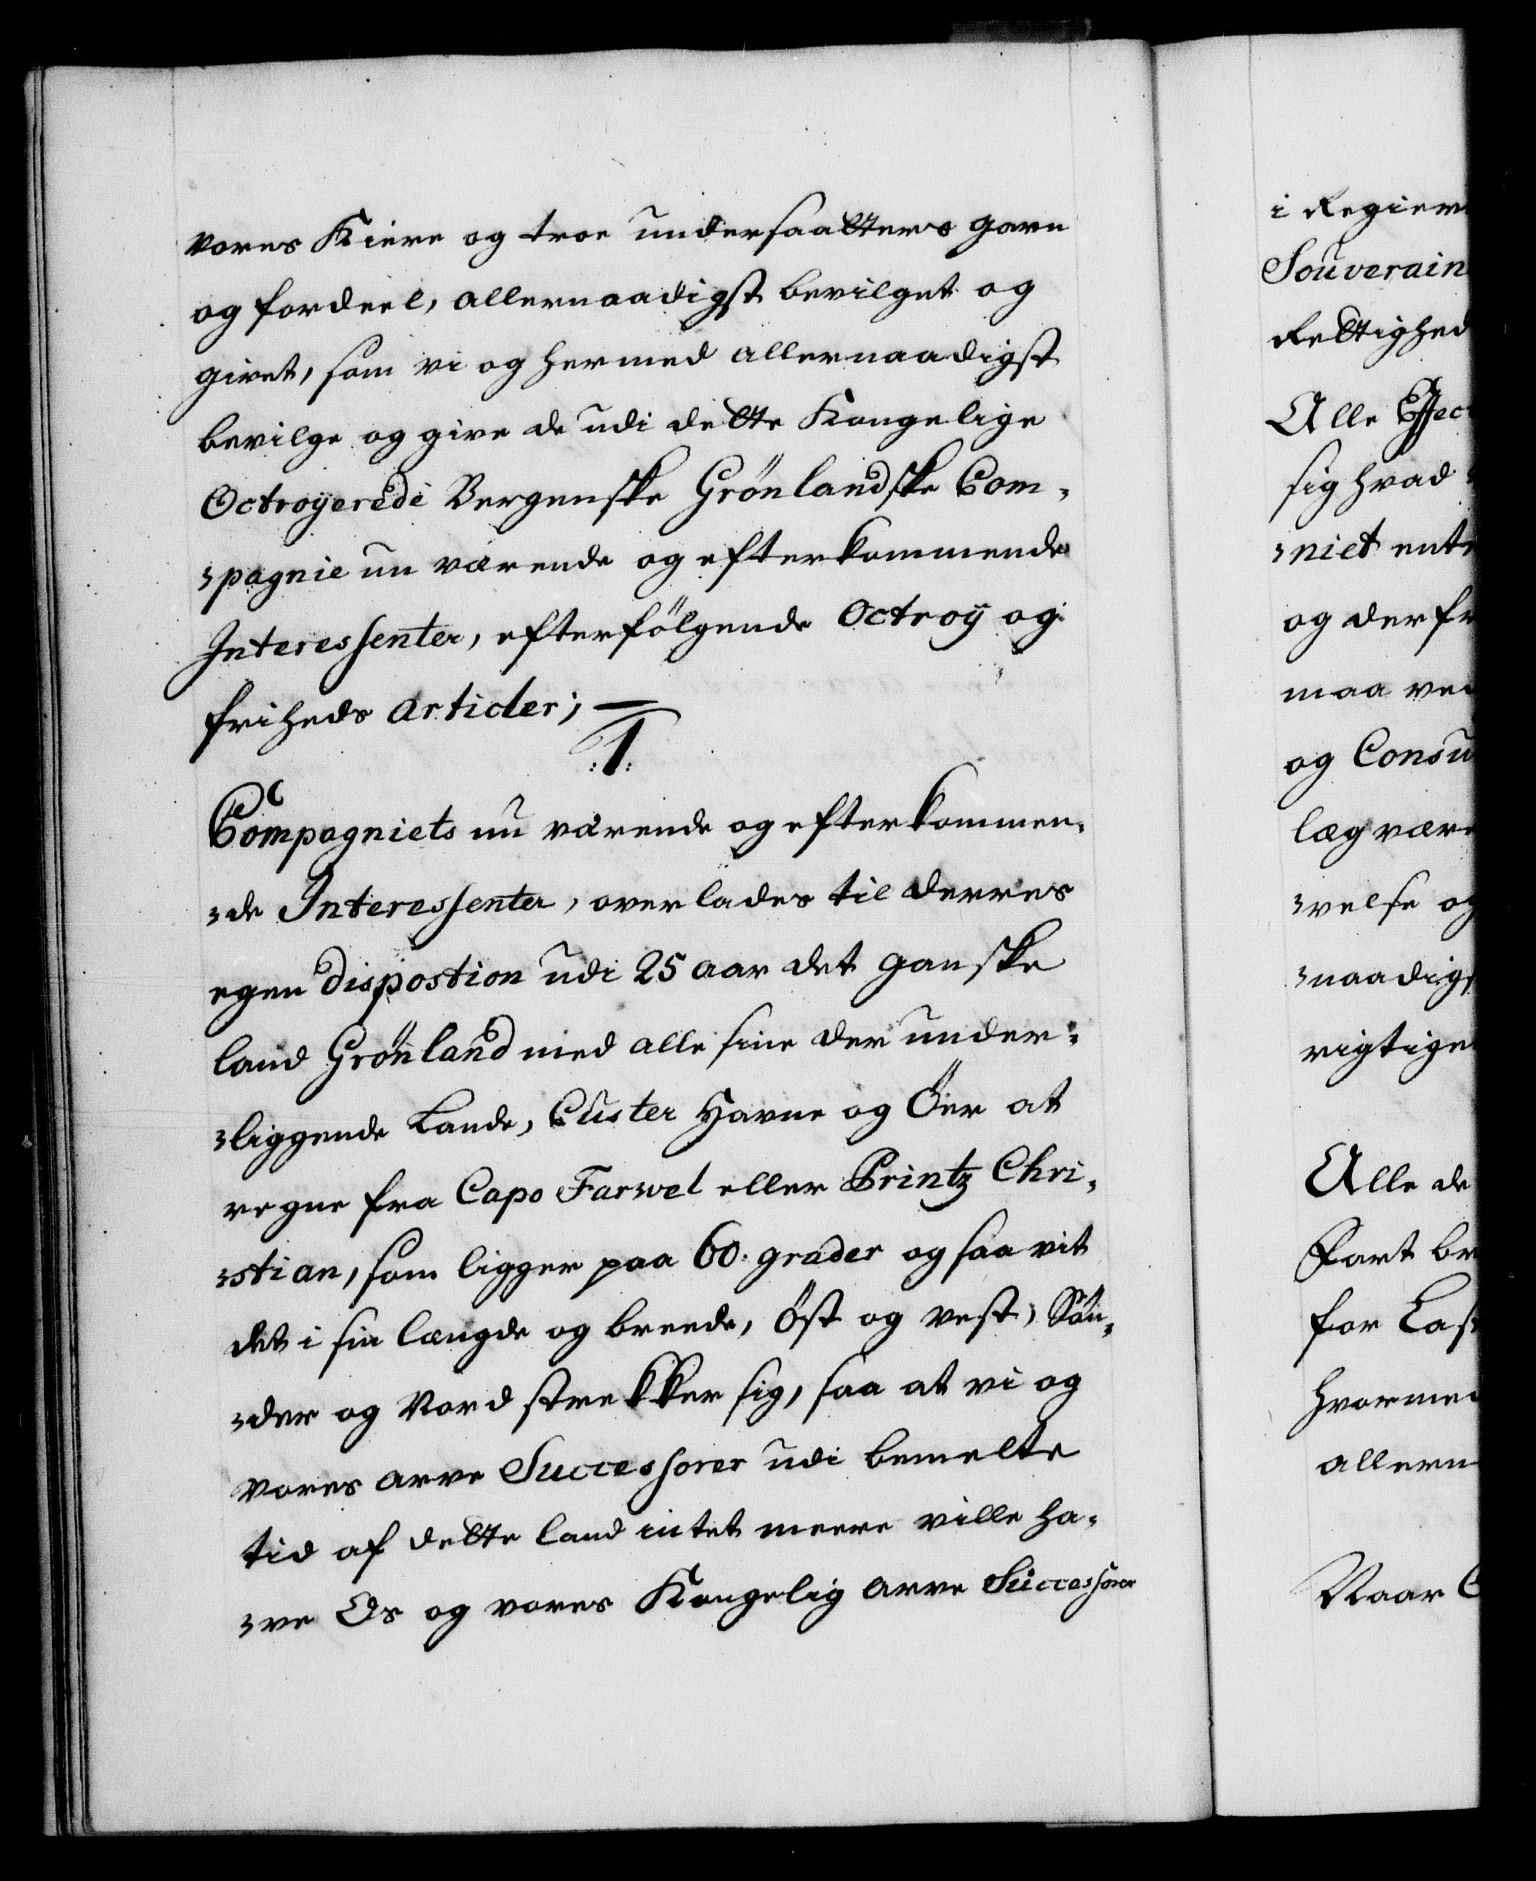 vores Kiere og troe undersaatters gavn
og fordeel, allernaadigst bevilget og
givet, som vi og hermed allernaadigst
bevilge og give de udi dette Kongelige
Octroyerede Bergenske Grönlandske Com¬
¬pagnie nu værende og efterkommende
Interessenter, efterfölgende Octroy og
friheds Articler; —
:1:
Compagniets nu værende og efterkommen¬
¬de Interessenter, overlades til derres
egen dispostion udi 25 aar det ganske
land Grönland med alle sine der under¬
¬liggende Lande, Custer Havne og Öer at
regne fra Capo Farwel eller Printz Chri¬
¬stian, som ligger paa 60. grader og saa vit
det i sin længde og breede, Öst og vest, Sön¬
¬der og Nord strekker sig, saa at vi og
vores arve Successorer udi bemelte
tid af dette land intet meere ville ha¬
¬ve Os og vores Kongelig arve Successorer
i Regier
Souverain
Rettighed
Alle Effec
sig hvad
¬niet ent
og derfr
maa ve
og Consu
læg være
¬velse og
¬naadigs
rigtige
Alle de
Fart br
for Las
hvormed
allern
Naar C